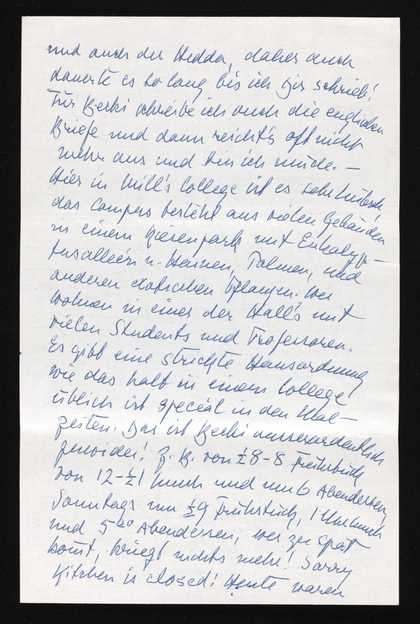 und auch der Hedda, daher auch
dauerte es so lang bis ich Dir schrieb!
Für Berki schreibe ich auch die englischen
Briefe und dann reicht's oft nicht
mehr aus und bin ich müde. –
Hier in Mill's College ist es sehr hübsch
das Campus besteht aus vielen Gebäuden
in einem Riesenpark mit Eukalyp-
tusalleen u. Hainen, Palmen, und
anderen exotischen Pflanzen. Wir
wohnen in einer der Hall's mit
vielen Students und Professoren.
Es gibt eine strickte Hausordnung
wie das halt in einem College
üblich ist special in den Mal-
zeiten. Das ist Berki ausserordentlich
zuwider! z. B. von ½8-8 Frühstück
von 12-½1 Lunch und um 6 Abendessen,
Sonntags um ½9 Frühstück, 1 Uhr Lunch
und 5³⁰ Abendessen, wer zu spät
kommt, kriegt nichts mehr! Sorry
Kitchen is closed! Heute waren